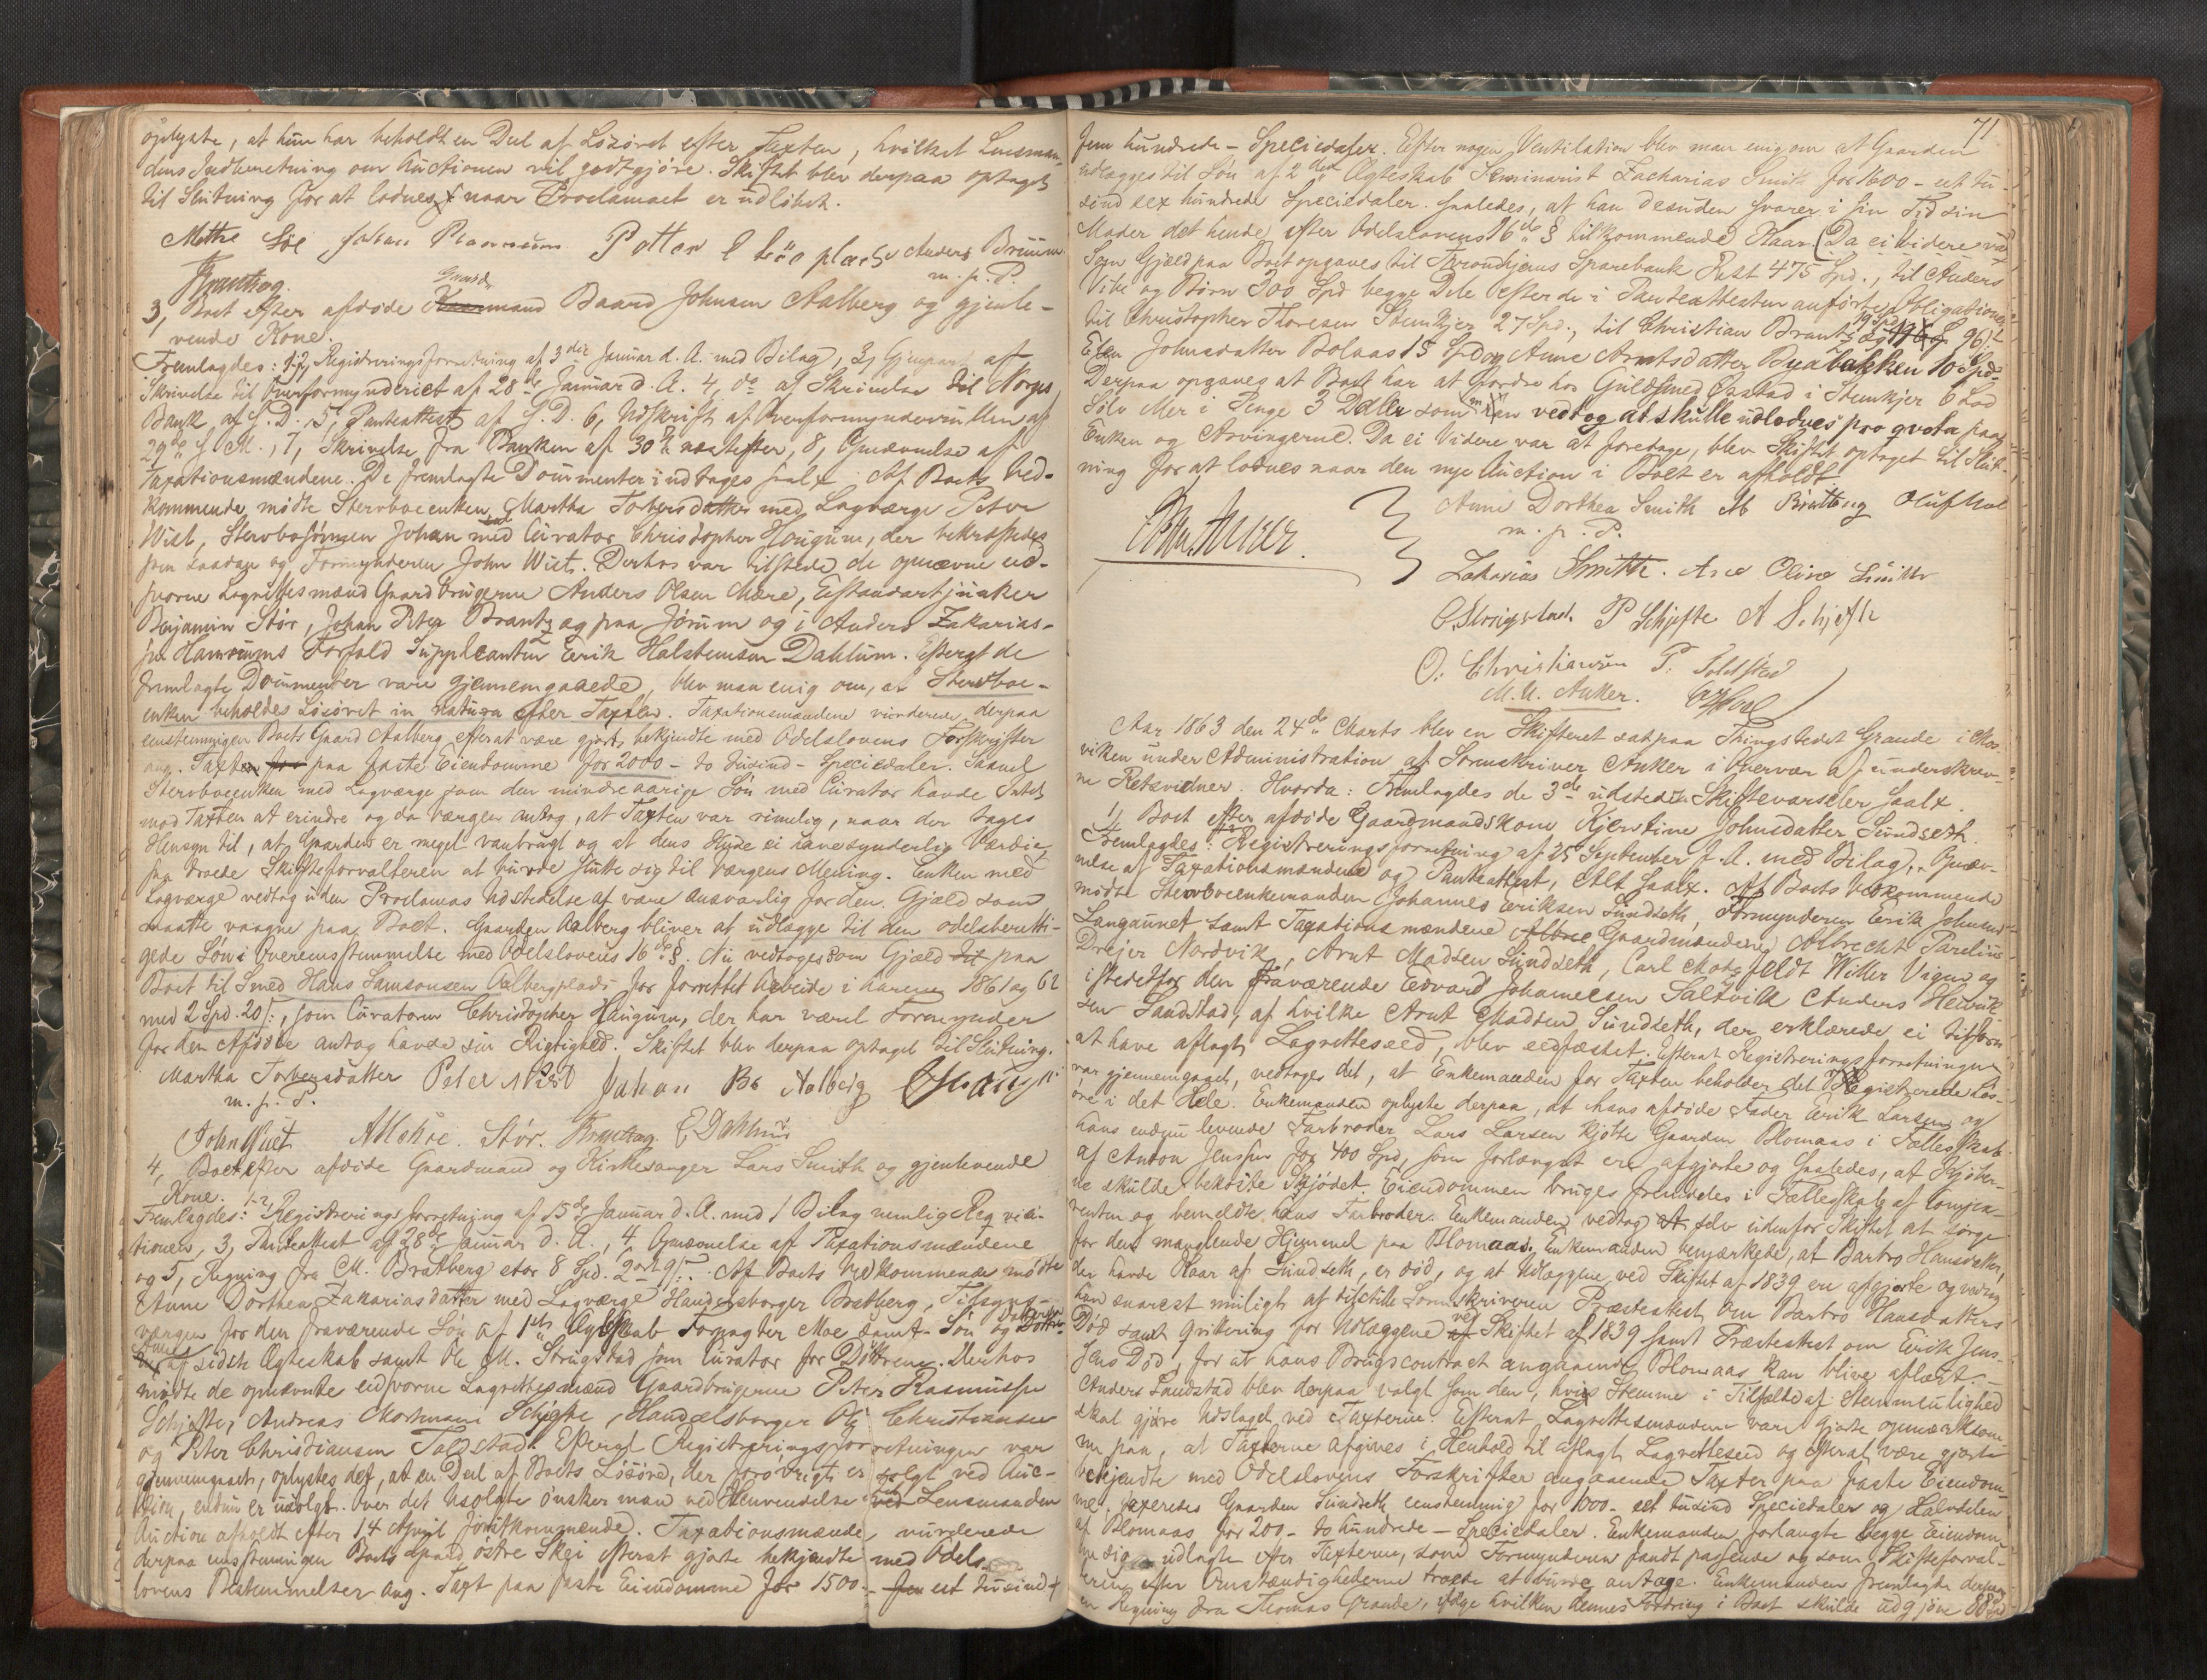 oplyste, at hun har beholdt en Deel af Løsøret efter Taxten, hvilket Lensman-
dens Indberetning om Auctionen vil godtgjöre. Skiftet blev derpaa optaget
til Slutning for at loddes naar Proclamaet er udløbet.
Mette Johan Petter Anders Brünn
m. p. P.
Gaard
3, Boet efter afdöde mand Baard Johnsen Aalberg og gjenle-
vende Kone.
Fremlagdes: 1-2, Registreringsforretning af 3die Januar d. A. med Bilag, 3, Gjenpart af
Skrivelse til Overformynderiet af 28de Januar d. A. 4, do af Skrivelse til Norges
Bank af s. D. 5, Panteattest af s. D. 6, Udskrift af Overformynderrullen af
29de s. M., 7, Skrivelse fra Banken af 30te næstefter, 8, Opnævnelse af
Taxationsmændene. De fremlagte Documenter indtages saal. Af Boets Ved-
kommende mödte Stervboenken Martha Torbersdatter med Laugværge Peter
Wist, Stervbosønnen Johan med Curator Christopher Haugum, der bekræftedes
som saadan og Formynderen John Wist. Derhos var tilstede de opnævnte ed-
svorne Lagrettesmænd Gaardbrugerne Anders Olsen Mære, Eftandartjunker
Benjamin Stör, Johan Peter Brantzag paa Jörum og i Anders Zakarias-
sen Hamrums Forfald Suppleanten Erik Halstensen Dahlum. Efterat de
fremlagte Documenter vare gjennemgaaede, blev man enig om, at Stervboe-
enken beholdes Løsøret in natura efter Taxten. Taxationsmændene vurderede derpaa
eenstemmigen Boets Gaard Aalberg efterat være gjorte bekjendte med Odelslovens Forskrifter
ang. Taxten paa faste Eiendomme for 2000 - to tusind - Speciedaler.
Stervboeenken med Laugværge som den mindreaarige Sön med Curator havde Intet
mod Taxten at erindre og da Værgen antog, at Taxten var rimelig, naar der tages
Hensyn til, at Gaarden er meget vanbrugt og at dens Huse ei have synderlig Værdie,
saa troede Skifteforvalteren at burde slutte sig til Værgens Mening. Enken med
Laugværge vedtog uden Proclamas Udstedelse at være ansvarlig for den Gjæld som
maatte vaagne paa Boet. Gaarden Aalberg bliver at udlægge til den odelsberetti-
gede Søn i Overeensstemmelse med Odelslovens 16de §. Nu vedtoges som Gjæld paa
Boet til Smed Hans Samsonsen Aalbergplads for forrettet Arbeide i Aarene 1861 og 62
med 2 Spd. 20 s:, som Curatoren Christopher Haugum, der har været Formynder
for den Afdöde antog havde sin Rigtighed. Skiftet blev derpaa optaget til Slutning.
Martha Torbersdatter Peter Wist Johan Bs Aalberg
m. p. P.
John Wist Stör. Brantzag. E Dahlum
4, Boet efter afdöde Gaardmand og Kirkesanger Lars Smith og gjenlevende
Kone.
Fremlagdes: 1-2, Registreringsforretning af 15de Januar d. A. med 1 Bilag nemlig Reqvisi-
tionen, 3, Panteattest af 28de Januar d. A., 4 Opnævnelse af Taxationsmændene
og 5, Regning fra M. Bratberg stor 8 Spd. 2 ort 9 s. Af Boets Vedkommende mödte
Anne Dorthea Zakariasdatter med Laugværge Handelsborger Bratberg, Tilsyns-
værgen for den fraværende Sön af 1ste Ægteskab Forpagter Moe samt Sön og Dottre
af sidste Ægteskab samt Ole M. Strugstad som Curator for Döttrene. Derhos
mödte de opnævnte edsvorne Lagrettesmænd Gaardbrugerne Peter Rasmussen
Schjefte, Andreas Mortensen Schjefte, Handelsborger Ole Christiansen
og Peter Christiansen Toldstad. Efterat Registreringsforretningen var
gjennemgaaet, oplystes det, at en Deel af Boets Løsöre, der forövrigt er solgt ved Auc-
tion, endnu er usolgt. Over det Usolgte önsker man ved Henvendelse til Lensmanden
Auction afholdt efter 14 April förstkommende. Taxationsmændene vurderede
derpaa eensstemmigen Boets Gaard östre Skei efterat gjorte bekjendte med Odels-
lovens Bestemmelser ang. Taxt paa faste Eiendomme for 1500 - et tusind
71
fem hundrede - Speciedaler. Efter nogen Ventilation blev man enig om at Gaarden
udlægges til Sön af 2det Ægteskab Seminarist Zacharias Smith for 1600 - eet tu-
sind sex hundrede Speciedaler saaledes, at han desuden svarer i sin Tid sin
Moder det hende efter Odelslovens 16de § tilkommende Kaar. (Da ei videre var
Som Gjæld paa Boet opgaves til Throndhjems Sparebank Rest 475 Spd., til Anders
Vibe og Börn 300 Spd begge Dele efter de i Panteattesten anførte Obligationer,
til Christopher Thoresen Steenkjer 27 Spd., til Christian Brantzæg 96 s
Johnsdatter Bolaas 15 Spd og Anne Arntsdatter Byabakken 10 Spd.
Derpaa opgaves at Boet har at fordre hos Guldsmed Opstad i Stenkjer 6 Lod
Sölv eller i Penge 3 Daler som man vedtog at skulle udloddes pro qvota paa
Enken og Arvingerne. Da ei Videre var at foretage, blev Skiftet optaget til Slut-
ning for at loddes naar den nye Auction i Boet er afholdt.
Anne Dorthea Smith M Bratberg Oluf Moe
m. p. P.
Zakarias Smith. Ane Oline Smith
O. Strugstad. P Schjefte A Schjefte
O. Christiansen P. Toldstad
M. A. Anker.
Aar 1863 den 24de Marts blev en Skifteret sat paa Thingstedet Grande i Mos-
viken under Administration af Sorenskriver Anker i Overvær af underskrev-
ne Retsvidner. Hvorda: Fremlagdes de 3de udstedte Skiftevarseler saal.
1, Boet efter afdöde Gaardmandskone Kjerstine Johnsdatter Sundseth.
Fremlagdes: Registreringsforretning af 25 September f. A. med Bilag, Opnæv-
nelse af Taxationsmændene og Panteattest, Alt saal. Af Boets Vedkommende
mödte Stervboeenkemanden Johannes Eriksen Sundseth, Formynderen Erik Johnsen
Langaunet samt Taxationsmændene Gaardmændene Albrecht Parelius
Dreyer Nordvik, Arnt Madsen Sundseth, Carl Motzfeldt Willer Vigen og
istedetfor den fraværende Edvard Johannesen Saltvik Anders Henrik-
sen Sandstad, af hvilke Arnt Madsen Sundseth, der erklærede ei tilforn
at have aflagt Lagretteseed, blev eedfæstet. Efterat Registreringsforretningen
var gjennemgaaet, vedtoges det, at Enkemanden for Taxten beholder det registrerede Løs-
öre i det Hele. Enkemanden oplyste derpaa, at hans afdöde Fader Erik Larsen og
hans endnu levende Farbroder Lars Larsen kjøbte Gaarden Blomaas i Fællesskab
af Anton Jenssen for 400 Spd, som forlængst ere afgjorte og saaledes, at Kjøber-
ne skulde bekoste Skjødet. Eiendommen bruges fremdeles i Fællesskab af Compa-
renten og bemeldte hans Farbroder. Enkemanden vedtog selv udenfor Skiftet at sörge
for den manglende Hjemmel paa Blomaas. Enkemanden bemærkede, at Barbro Hansdatter,
der havde Kaar af Sundseth, er död, og at Udlæggene ved Skiftet af 1839 ere afgjorte og vedtog
han snarest muligt at tilstille Sorenskriveren Præsteattest om Barbro Hansdatters
Död samt Qvittering for Udlæggene ved Skiftet af 1839 samt Præsteattest om Eirik Jens-
sens Död, for at hans Brugscontract angaaende Blomaas kan blive aflæst.
Anders Sandstad blev derpaa valgt som den, hvis Stemme i Tilfælde af Stemmeulighed
skal gjöre Udslaget ved Taxterne. Efterat Lagrettesmændene vare gjorte opmærksom-
me paa, at Taxterne afgives i Henhold til aflagt Lagretteseed og efterat være gjorte
bekjendte med Odelslovens Forskrifter angaaende Taxter paa faste Eiendom-
me, taxeredes Gaarden Sundseth eenstemmig for 1000 - eet tusind Speciedaler og Halvdelen
af Blomaas for 200 - to hundrede - Speciedaler. Enkemanden forlangte begge Eiendom-
me sig udlagte efter Taxterne, som Formynderen fandt passende og som Skifteforval-
teren efter Omstændighederne troede at burde antage. Enkemanden fremlagde derpaa
en Regning fra Thomas Grande, ifølge hvilken dennes Fordring i Boet skulde udgjöre 88 Spd